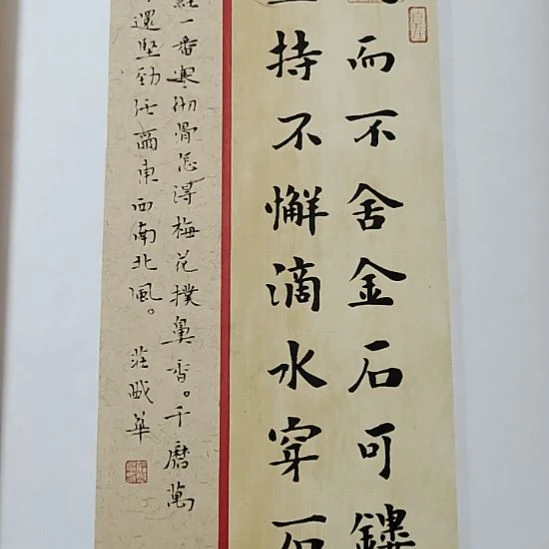 而不舍金石可鏤
持不懈滴水穿石
一番寒彻骨怎得梅花撲鼻香。千磨萬
還堅勁任爾東西南北風。莊